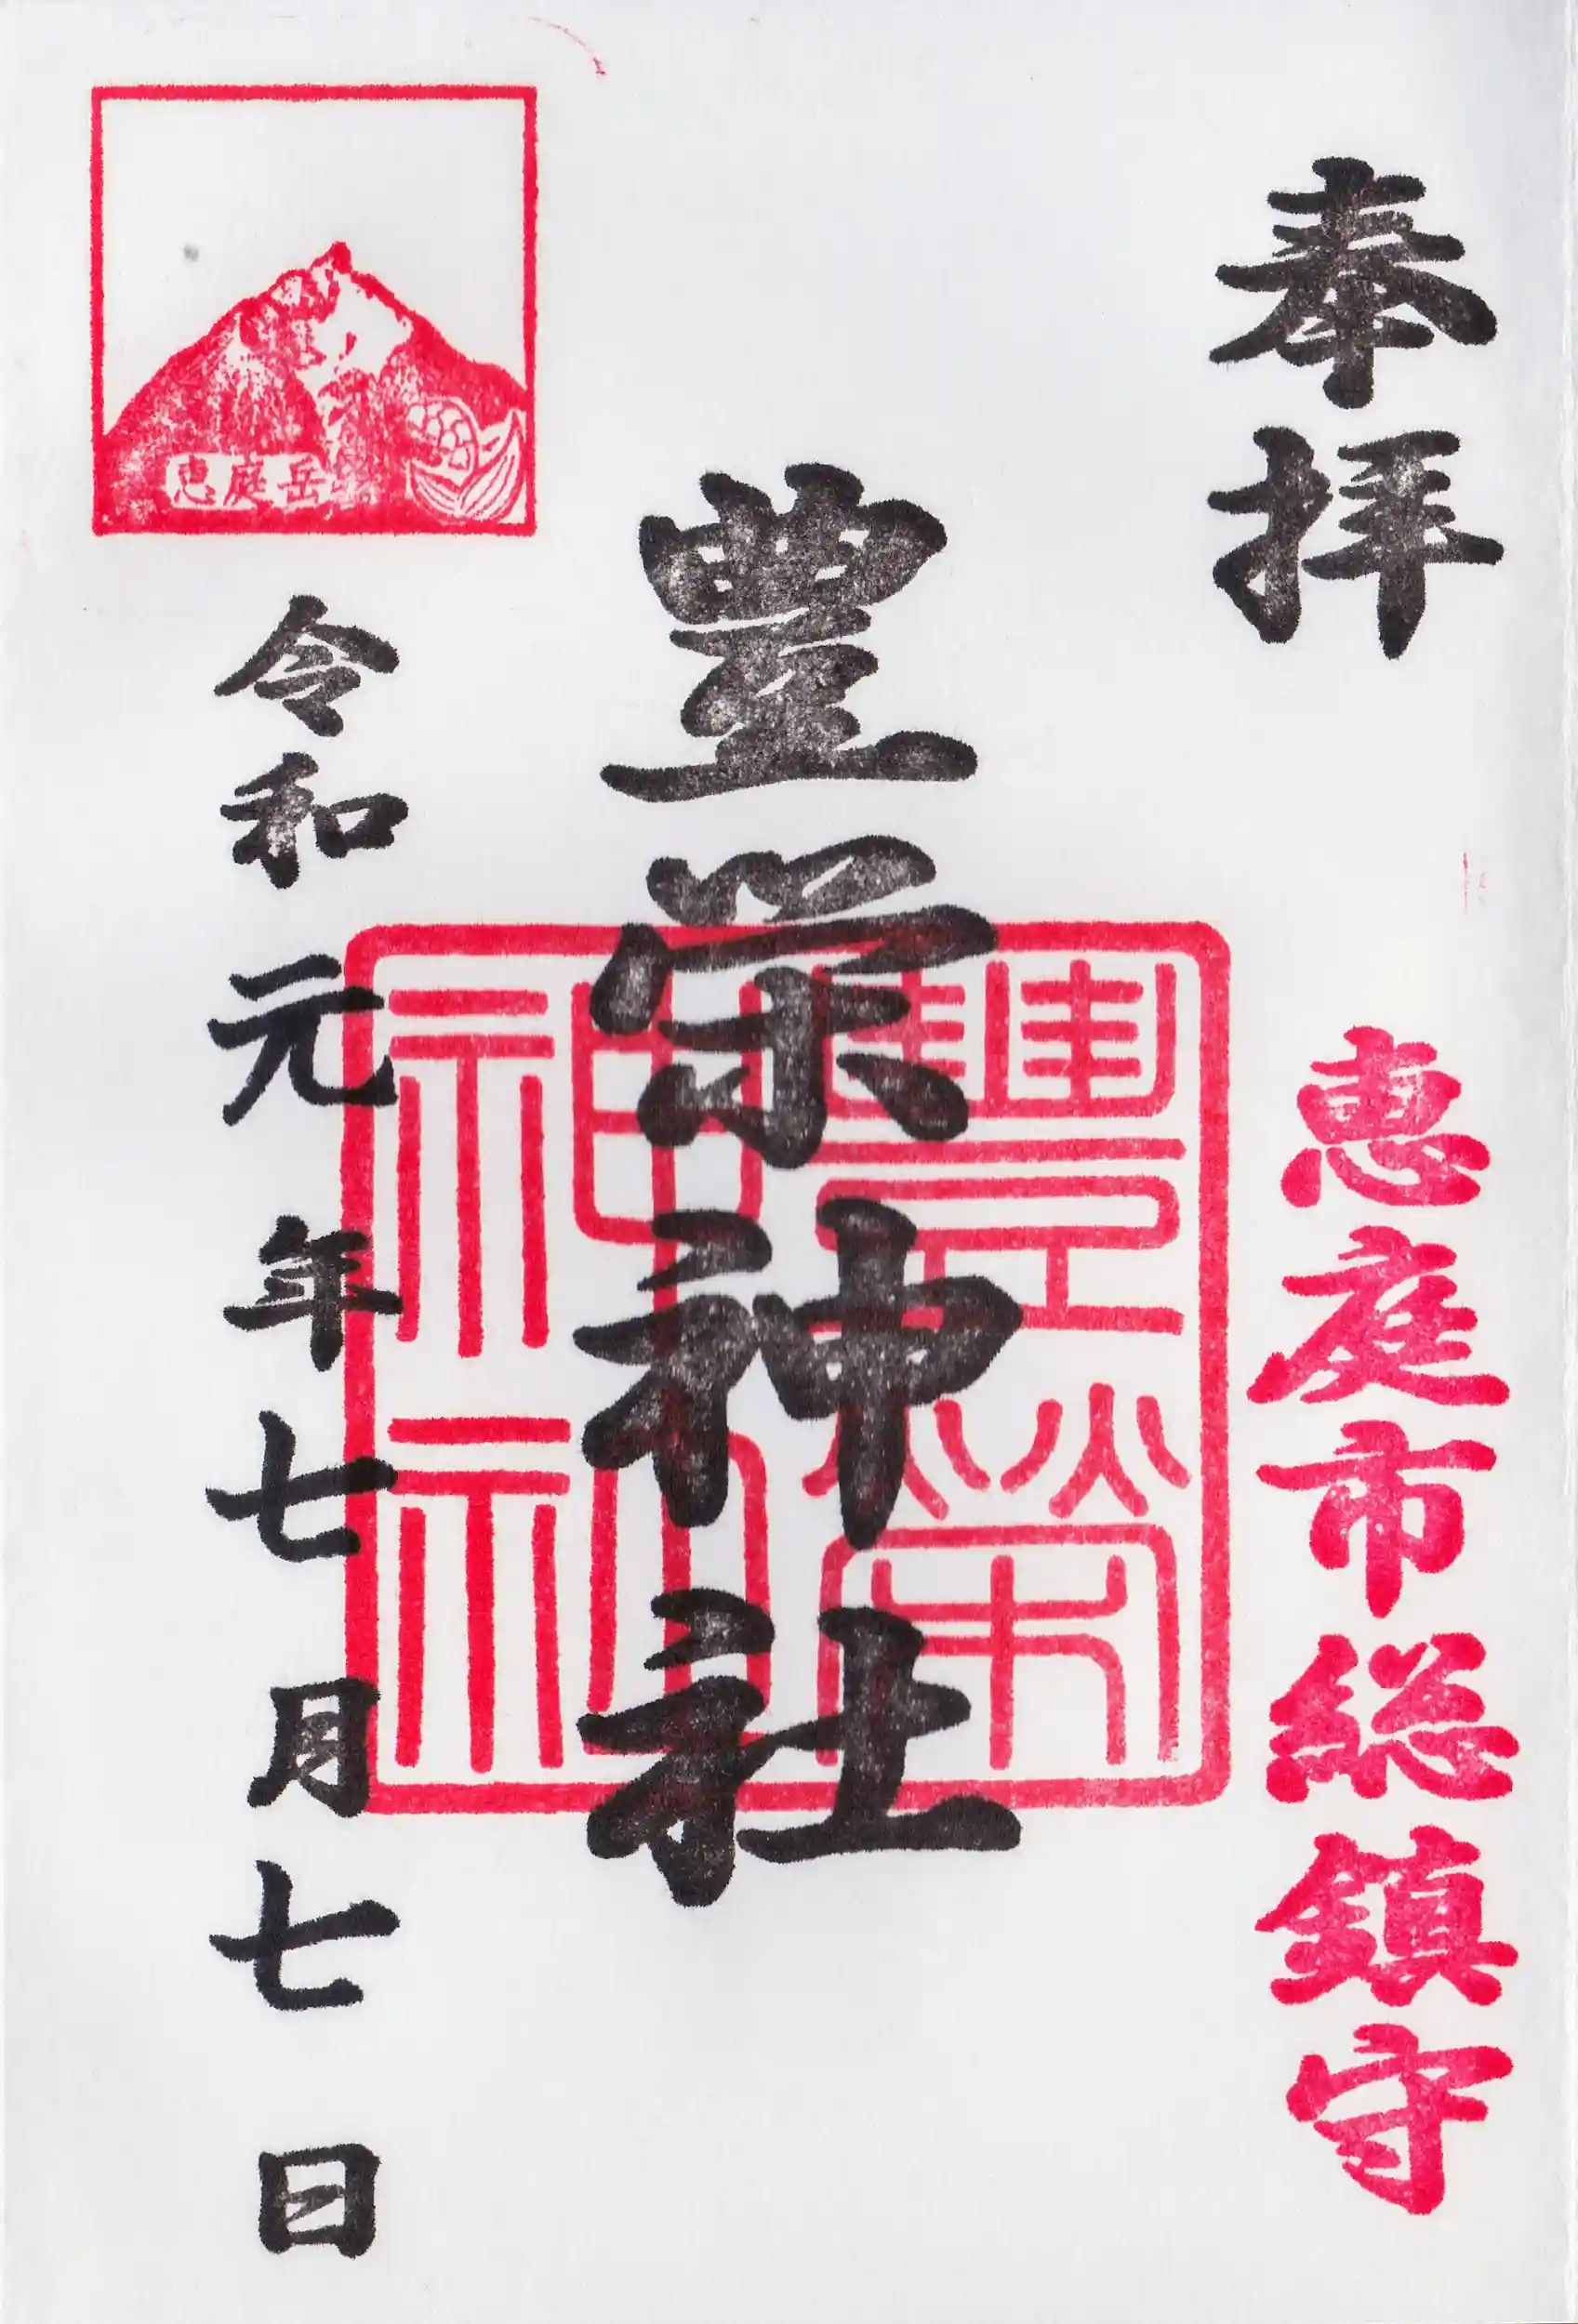 奉拝
恵庭市総鎮守
豊栄神社
豊栄
神社
恵庭岳
令和元年七月七日